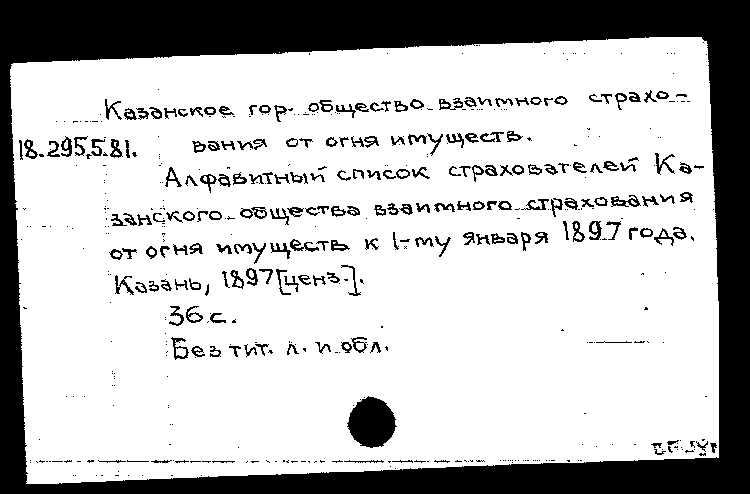 Казанское гор. общество взаимного страхо-
18.295.5.81. вания от огня имуществ.
Алфавитный список страхователей Ка-
занского общества взаимного страхования
от огня имуществ к 1-му января 1897 года.
Казань, 1897 [ценз.].
36 с.
Без тит. л. и обл.